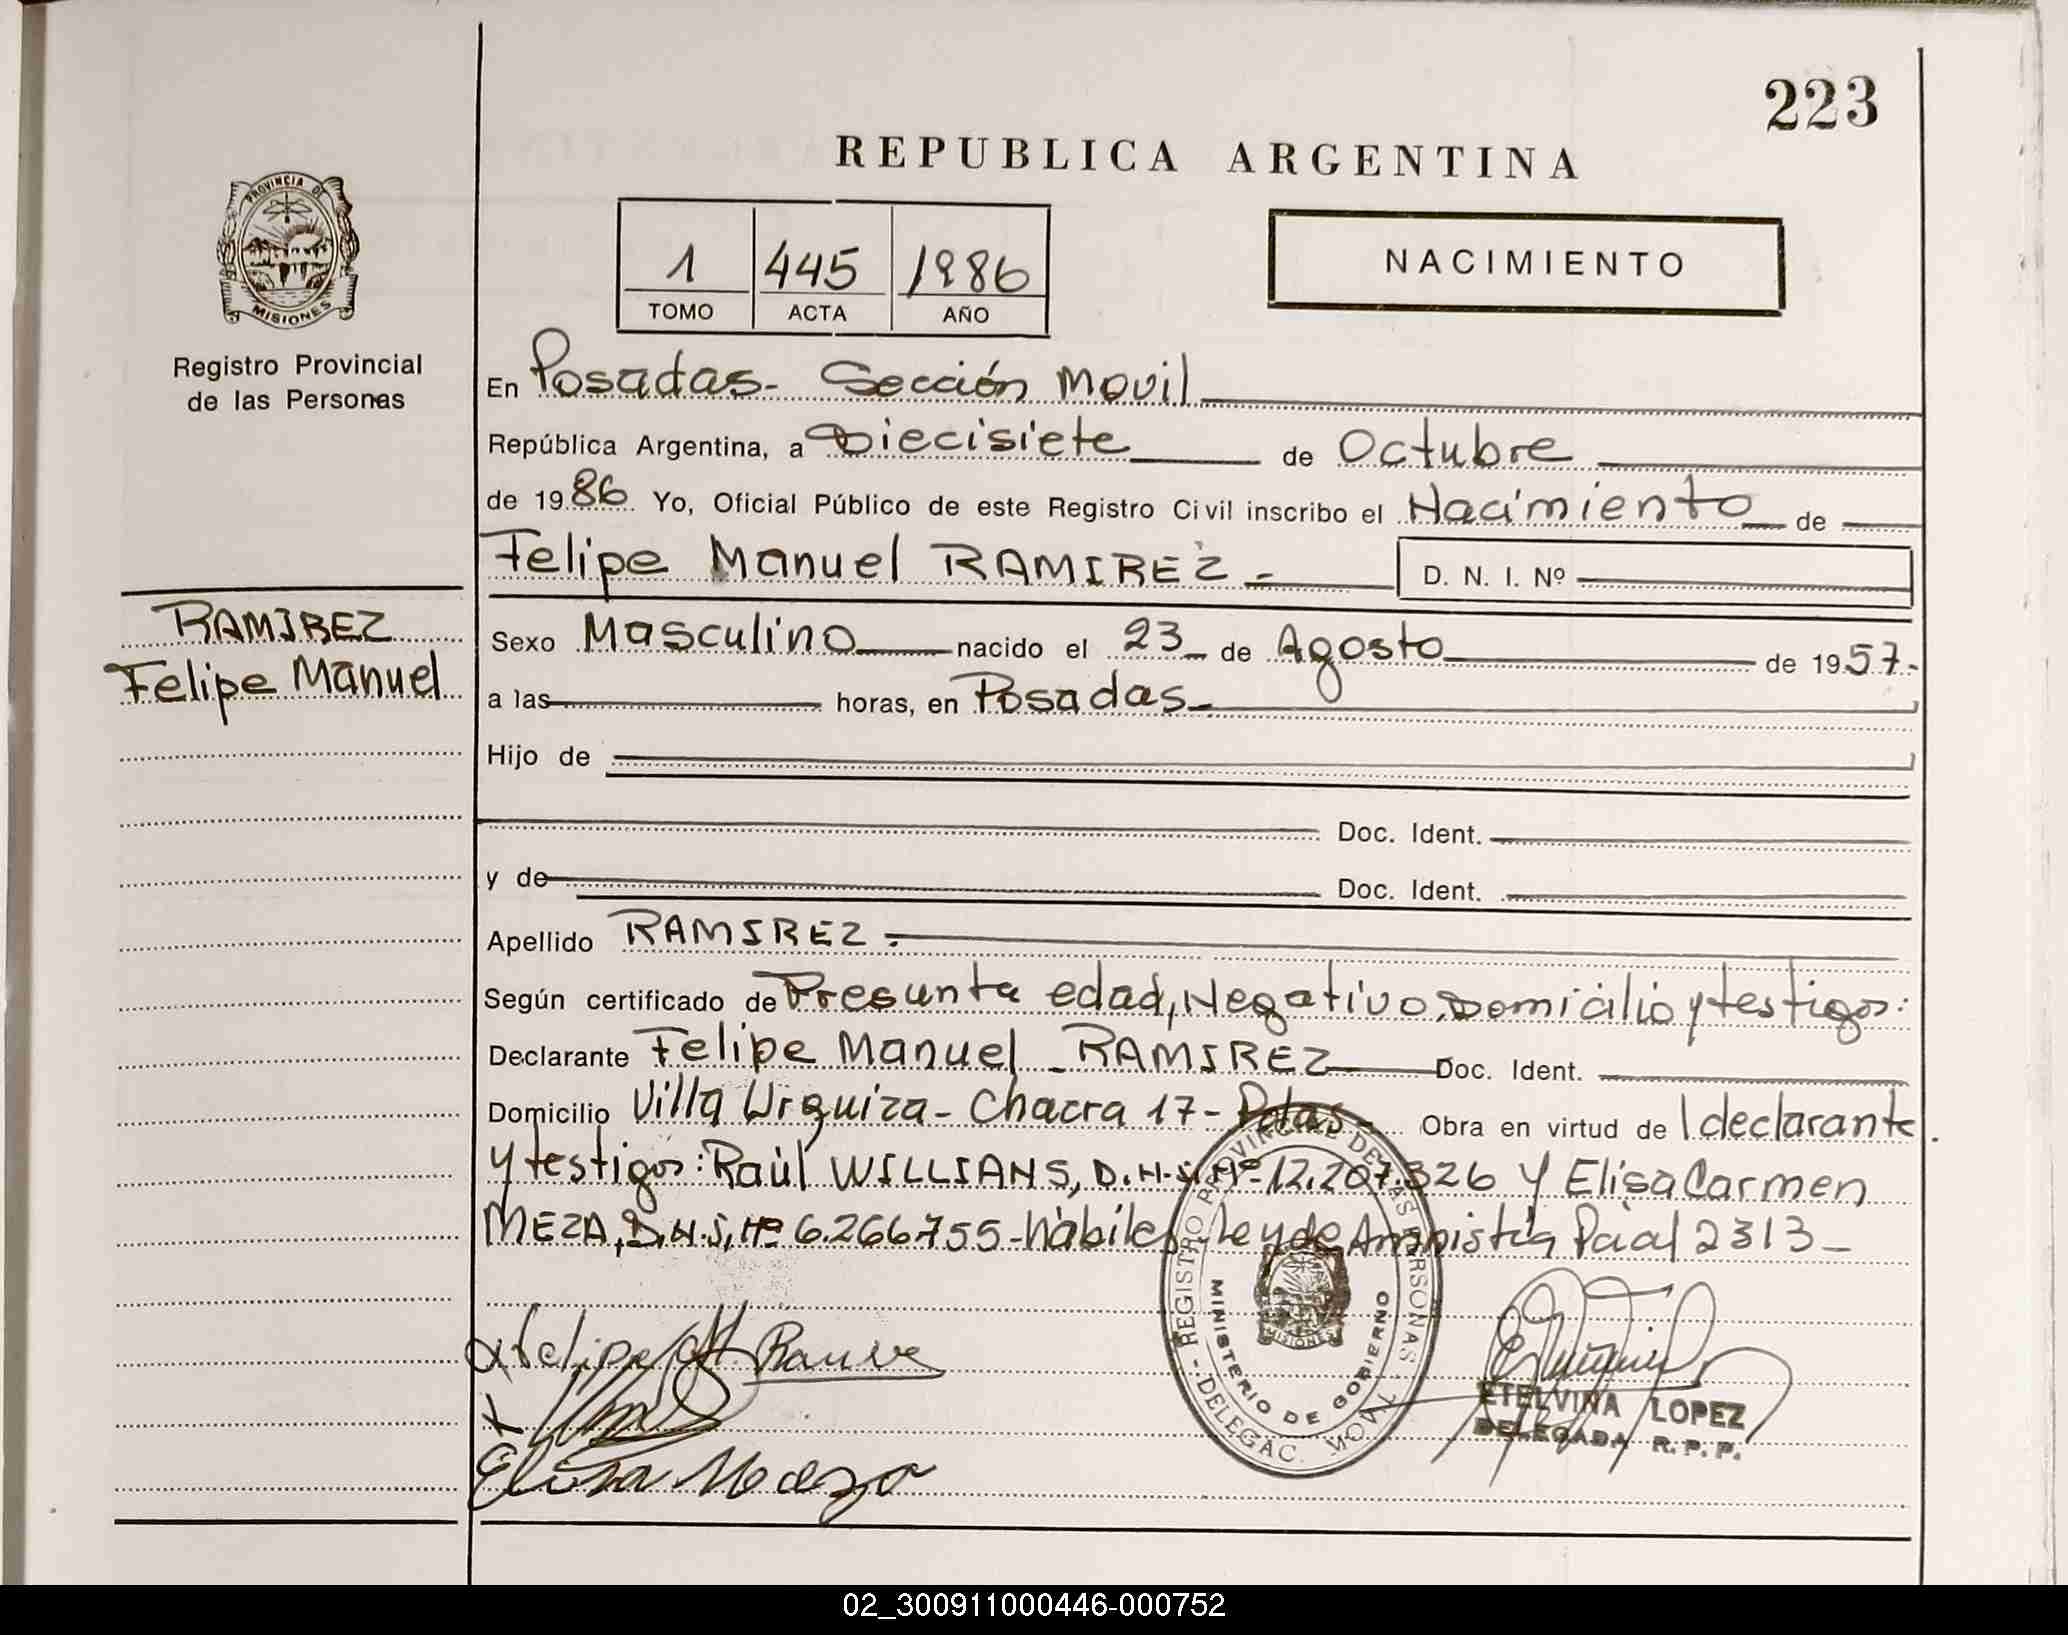 223
REPUBLICA ARGENTINA
PROVINCIA DE
MISIONES
Registro Provincial
de las Personas
1 445 1986
TOMO ACTA AÑO
NACIMIENTO
En Posadas- Sección Movil
República Argentina, a Diecisiete de Octubre
de 1986 Yo, Oficial Público de este Registro Civil inscribo el Nacimiento de
Felipe Manuel RAMIREZ- D. N. I. Nº
RAMIREZ
Felipe Manuel
Sexo Masculino nacido el 23 de Agosto de 1957.-
a las horas, en Posadas-
Hijo de
Doc. Ident.
y de Doc. Ident.
Apellido RAMIREZ.-
Según certificado de Presunta edad, Negativo, Domicilio y testigos:
Declarante Felipe Manuel RAMIREZ Doc. Ident.
Domicilio Villa Urquiza- Chacra 17- Pdas- Obra en virtud de l declarante
y testigos: Raúl WILLIANS, D.N.I. Nº 12.207.326 y Elisa Carmen
MEZA, D.N.I, Nº 6.266.755-hábiles-Ley de Amnistía Pcial 2313-
REGISTRO PROVINCIAL DE LAS PERSONAS
MINISTERIO DE GOBIERNO
MISIONES
DELEGAC. MOVIL
Felipe M. Ramire
Elisa Meza
ETELVINA LOPEZ
DELEGADA R.P.P.
02_300911000446-000752